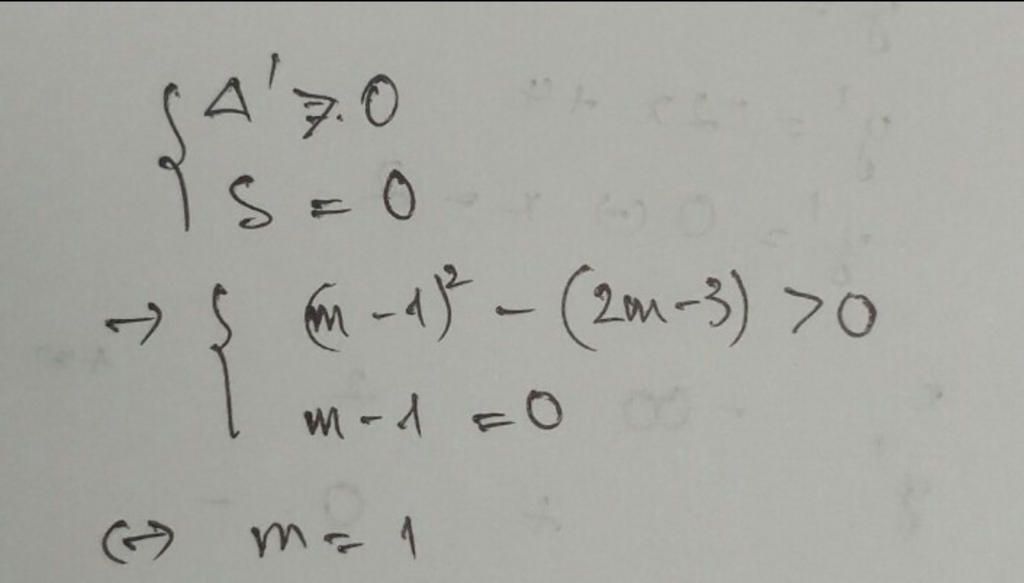 { Δ' ≥ 0
S = 0
→ { (m - 1)² - (2m - 3) > 0
m - 1 = 0
↔ m = 1